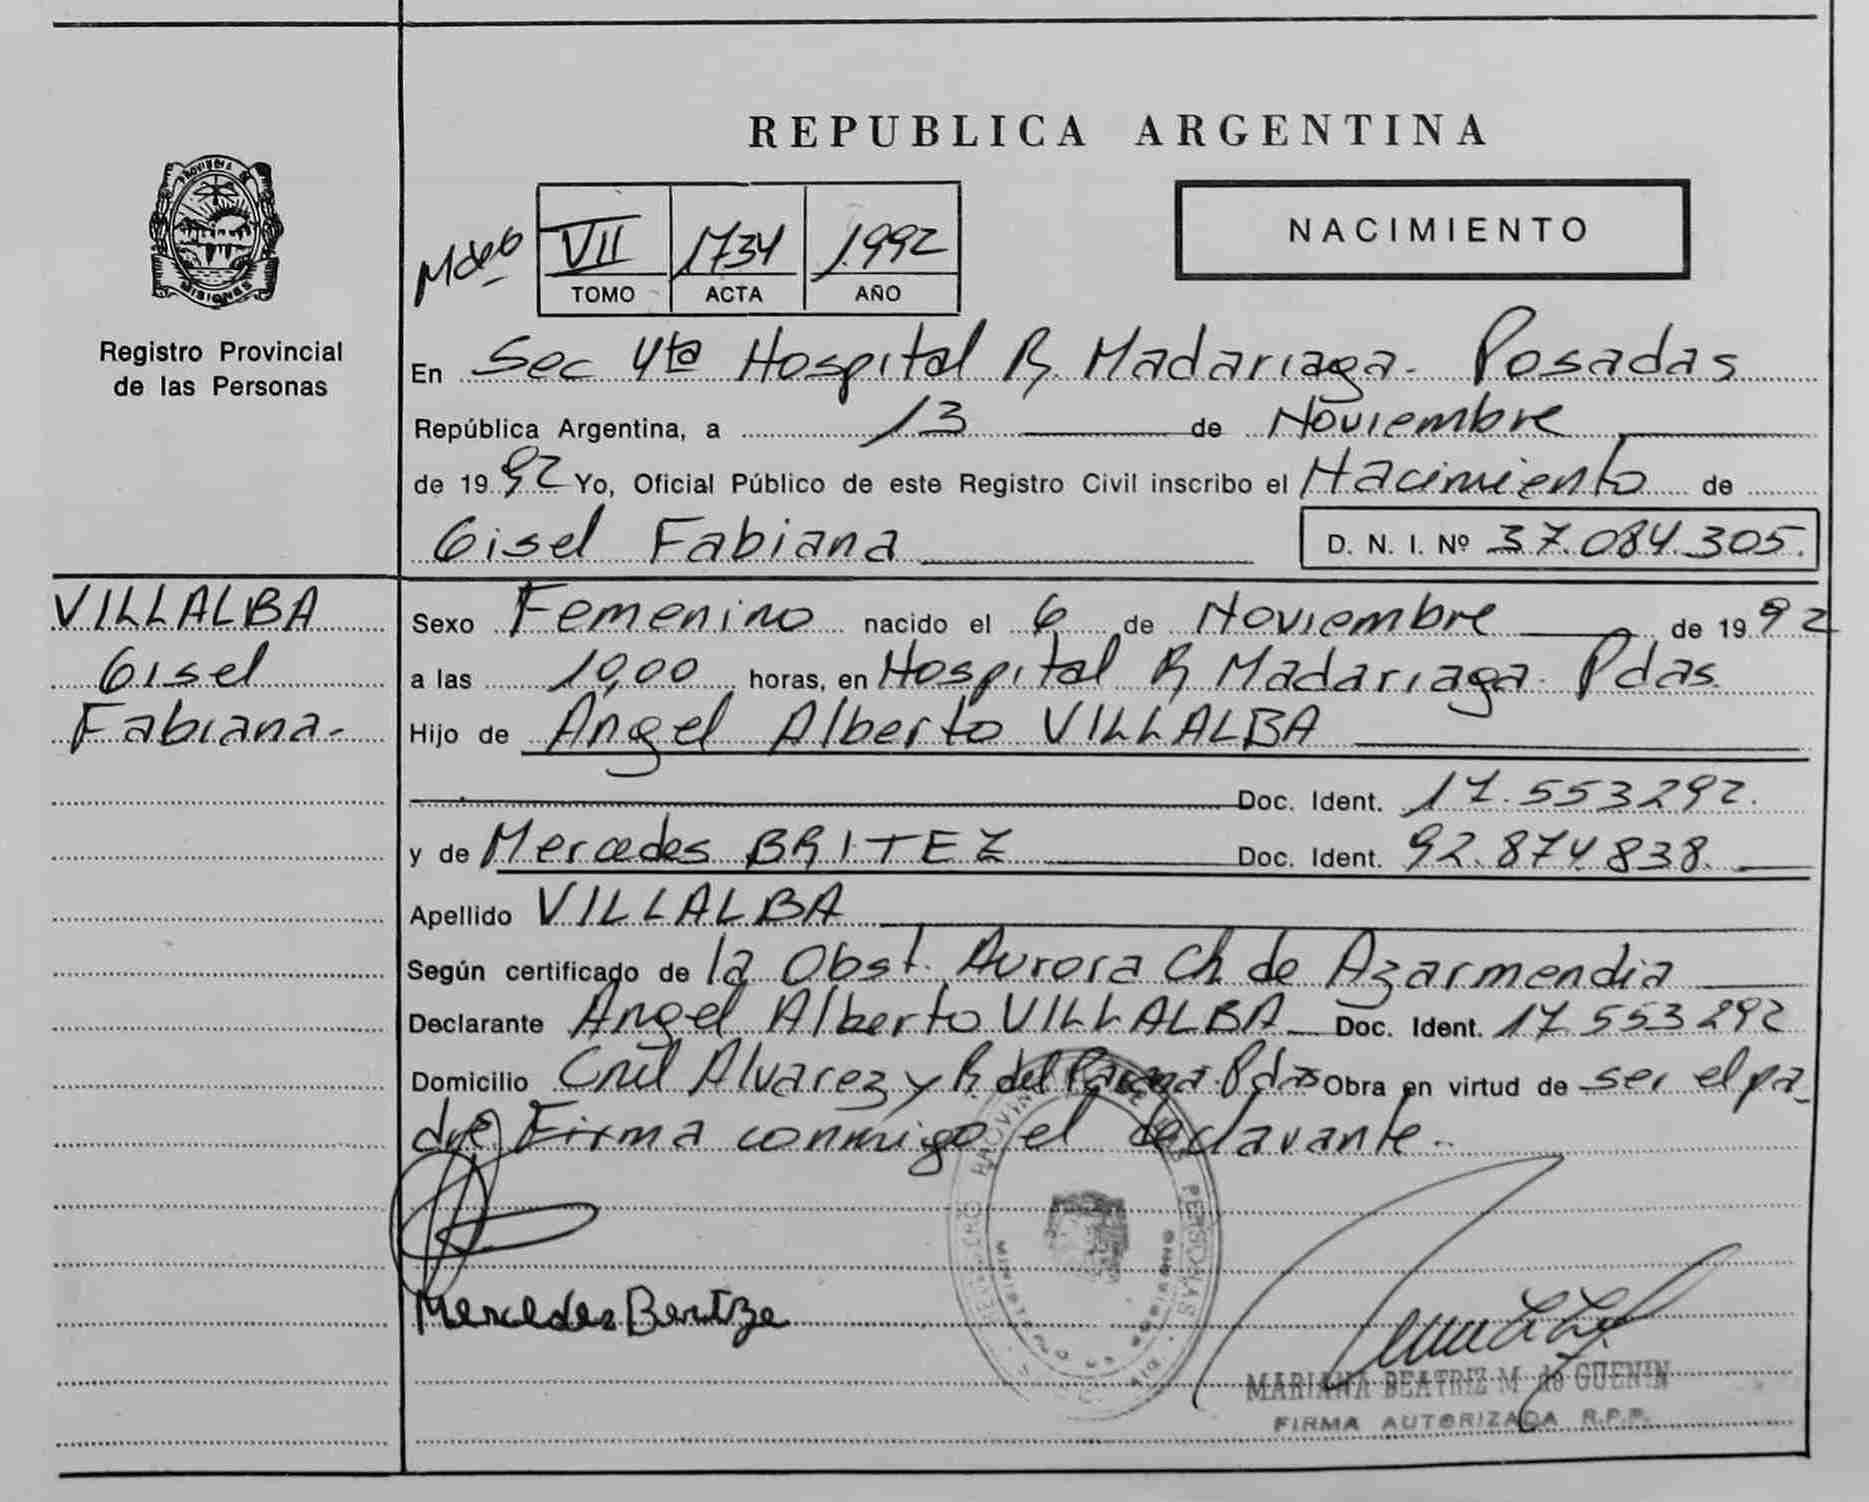 REPUBLICA ARGENTINA
PROVINCIA DE
MISIONES
Registro Provincial
de las Personas
VII 1734 1992
TOMO ACTA AÑO
NACIMIENTO
En Sec 4ta Hospital R. Madariaga - Posadas
República Argentina, a 13 de Noviembre
de 1992 Yo, Oficial Público de este Registro Civil inscribo el Nacimiento de
Gisel Fabiana D. N. I. Nº 37.084.305.
VILLALBA
Gisel
Fabiana-
Sexo Femenino nacido el 6 de Noviembre de 1992
a las 10,00 horas, en Hospital R Madariaga - Pdas.
Hijo de Angel Alberto VILLALBA
Doc. Ident. 17.553292.
y de Mercedes BRITEZ Doc. Ident. 92.874.838.
Apellido VILLALBA
Según certificado de la Obst. Aurora Ch de Azarmendia
Declarante Angel Alberto VILLALBA Doc. Ident. 17.553292
Domicilio Cnel Alvarez y R. del Parana - Pdas Obra en virtud de ser el pa-
dre, Firma conmigo el declarante.-
PERSONAS
Mercedes Beritze
MARIANA BEATRIZ M. de GUENIN
FIRMA AUTORIZADA R.P.P.